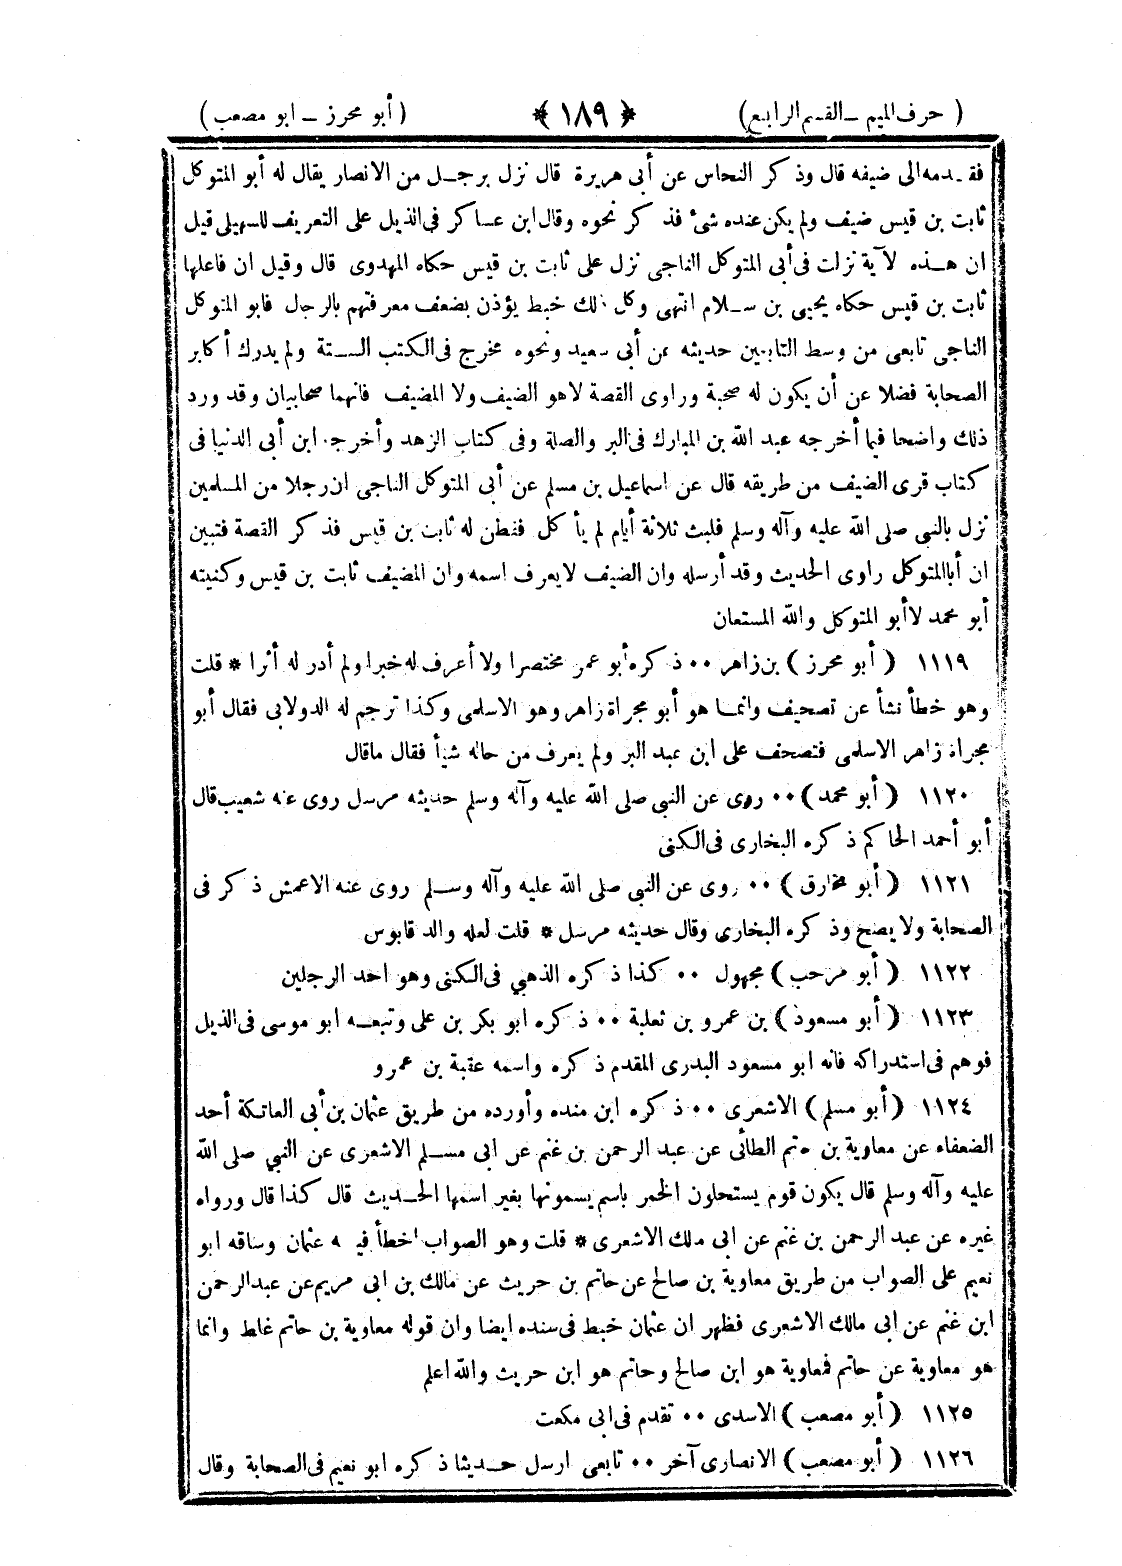 ( حرف الميم ــ القسم الرابع ) ﴿ ١٨٩ ﴾ ( أبو محرز ــ ابو مصعب )
فقدمه الى ضيفه قال وذكر النحاس عن أبى هريرة قال نزل برجل من الانصار يقال له أبو المتوكل
ثابت بن قيس ضيف ولم يكن عنده شئ فذكر نحوه وقال ابن عساكر فى الذيل على التعريف للسهيلى قيل
ان هذه لآية نزلت فى أبى المتوكل الناجى نزل على ثابت بن قيس حكاه المهدوى قال وقيل ان فاعلها
ثابت بن قيس حكاه يحيى بن سلام انتهى وكل ذلك خبط يؤذن بضعف معرفتهم بالرجال فابو المتوكل
الناجى تابعى من وسط التابعين حديثه عن أبى سعيد ونحوه مخرج فى الكتب الستة ولم يدرك أكابر
الصحابة فضلا عن أن يكون له صحبة وراوى القصة لاهو الضيف ولا المضيف فانهما صحابيان وقد ورد
ذلك واضحا فيما أخرجه عبد الله بن المبارك فى البر والصلة وفى كتاب الزهد وأخرجه ابن أبى الدنيا فى
كتاب قرى الضيف من طريقه قال عن اسماعيل بن مسلم عن أبى المتوكل الناجى ان رجلا من المسلمين
نزل بالنبى صلى الله عليه وآله وسلم فلبث ثلاثة أيام لم يأكل ففطن له ثابت بن قيس فذكر القصة فتبين
ان أبا المتوكل راوى الحديث وقد أرسله وان الضيف لايعرف اسمه وان المضيف ثابت بن قيس وكنيته
أبو محمد لاأبو المتوكل والله المستعان
١١١٩ ( أبو محرز ) بن زاهر ٠٠ ذكره أبو عمر مختصرا ولا أعرف له خبرا ولم أدر له أثرا * قلت
وهو خطأ نشأ عن تصحيف وانما هو أبو مجراة زاهر وهو الاسلمى وكذا ترجم له الدولابى فقال أبو
مجراة زاهر الاسلمى فتصحف على ابن عبد البر ولم يعرف من حاله شيأ فقال ماقال
١١٢٠ ( أبو محمد ) ٠٠ روى عن النبى صلى الله عليه وآله وسلم حديثه مرسل روى عنه شعيب قال
أبو أحمد الحاكم ذكره البخارى فى الكنى
١١٢١ ( أبو مخارق ) ٠٠ روى عن النبى صلى الله عليه وآله وسلم روى عنه الاعمش ذكر فى
الصحابة ولا يصح وذكره البخارى وقال حديثه مرسل * قلت لعله والد قابوس
١١٢٢ ( أبو مرحب ) مجهول ٠٠ كذا ذكره الذهبي فى الكنى وهو احد الرجلين
١١٢٣ ( أبو مسعود ) بن عمرو بن ثعلبة ٠٠ ذكره ابو بكر بن على وتبعه ابو موسى فى الذيل
فوهم فى استدراكه فانه ابو مسعود البدرى المقدم ذكره واسمه عقبة بن عمرو
١١٢٤ ( أبو مسلم ) الاشعرى ٠٠ ذكره ابن منده وأورده من طريق عثمان بن أبى العاتكة أحد
الضعفاء عن معاوية بن حاتم الطائى عن عبد الرحمن بن غنم عن ابى مسلم الاشعرى عن النبي صلى الله
عليه وآله وسلم قال يكون قوم يستحلون الخمر باسم يسمونها بغير اسمها الحديث قال كذا قال ورواه
غيره عن عبد الرحمن بن غنم عن ابى ملك الاشعرى * قلت وهو الصواب اخطأ فيه عثمان وساقه ابو
نعيم على الصواب من طريق معاوية بن صالح عن حاتم بن حريث عن مالك بن ابى مريم عن عبد الرحمن
ابن غنم عن ابى مالك الاشعرى فظهر ان عثمان خبط فى سنده ايضا وان قوله معاوية بن حاتم غلط وانما
هو معاوية عن حاتم فمعاوية هو ابن صالح وحاتم هو ابن حريث والله اعلم
١١٢٥ ( أبو مصعب ) الاسدى ٠٠ تقدم فى ابى مكعت
١١٢٦ ( أبو مصعب ) الانصارى آخر ٠٠ تابعى ارسل حديثا ذكره ابو نعيم فى الصحابة وقال